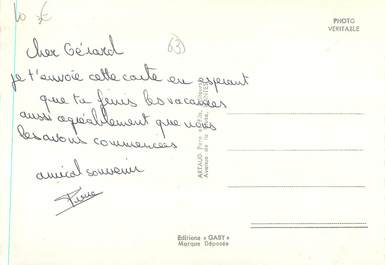 10 €
63
PHOTO
VÉRITABLE
Cher Gérard
je t'envoie cette carte en espérant
que tu finis les vacances
aussi agréablement que nous
les avons commencées
amical souvenir
Pierre
ARTAUD Père et Fils, Éditeurs
Avenue de la NANTES
Editions « GABY »
Marque Déposée